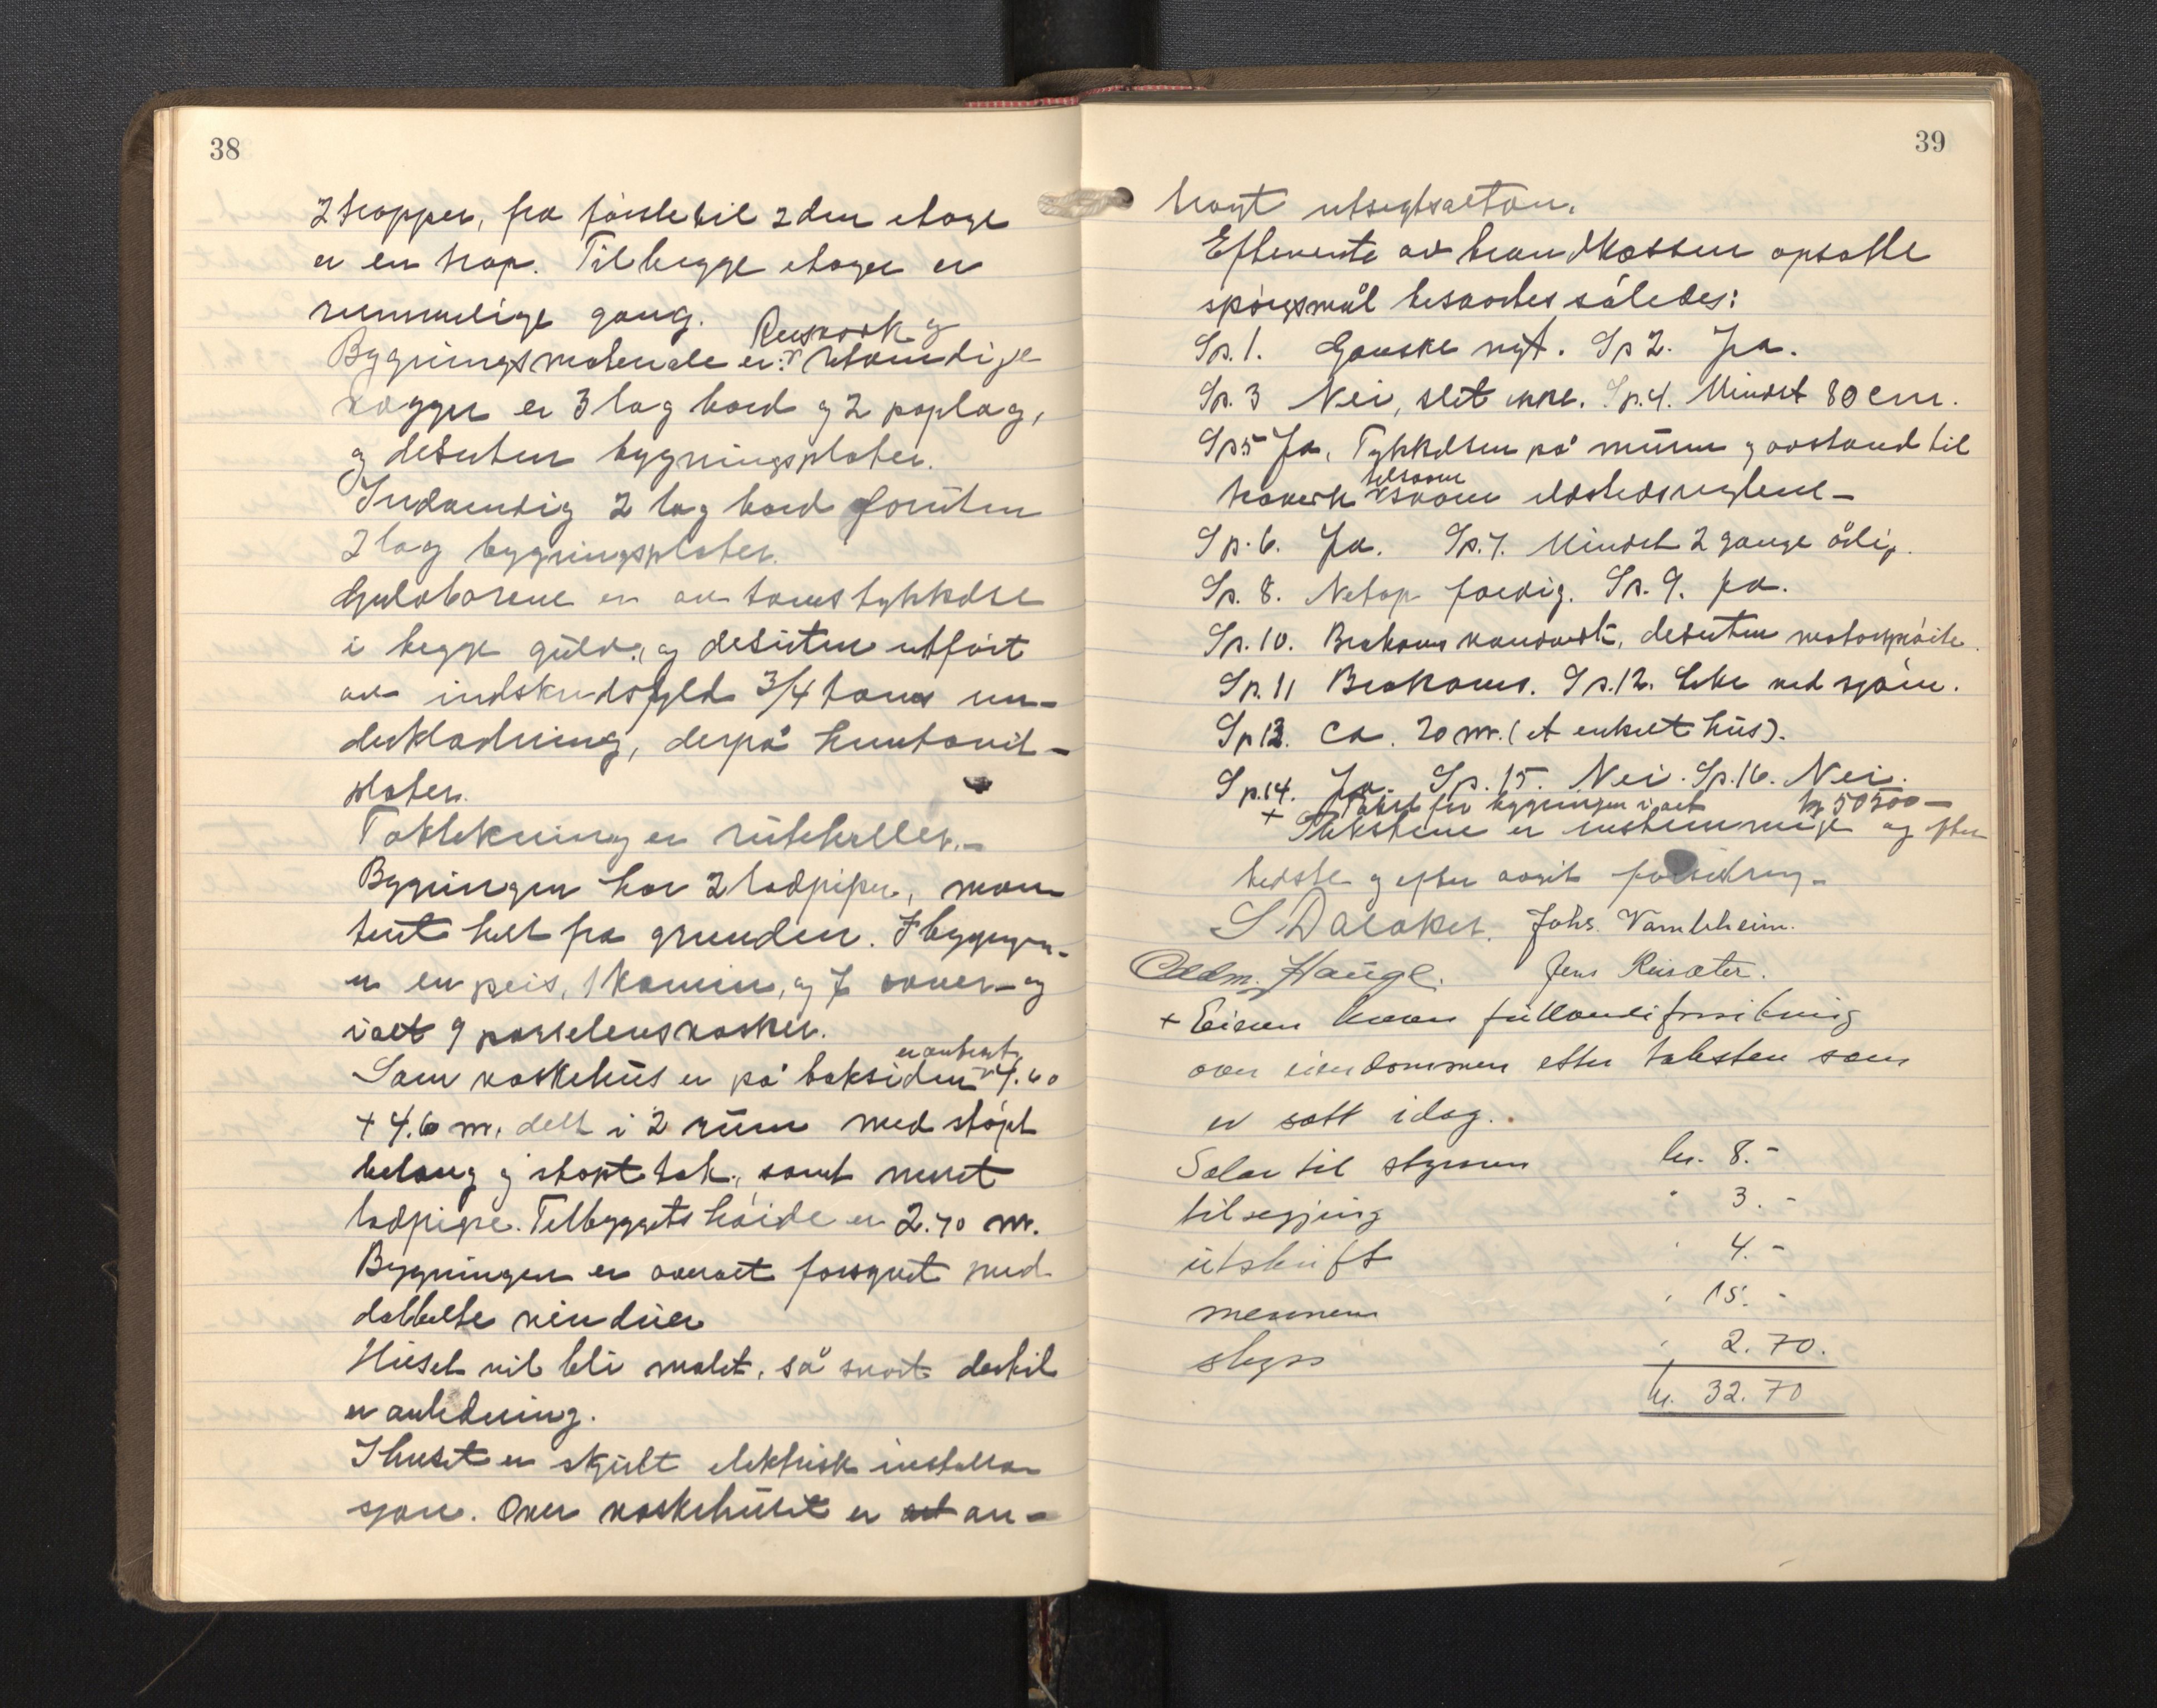 38
2 trapper, fra første til 2den etage
er en trap. Til begge etager er
rummelige gang.
Reisverk og
Bygningsmateriale er: utvendige
vægger er 3 lag bord og 2 paplag,
og desuten bygningsplater.
Indvendig 2 lag bord foruten
2 lag bygningsplater.
Gulvborene er av toms tykkelse
i begge gulv, og desuten utført
av indskudsfyld 3/4 toms un-
derklædning, derpå huntonit-
plater.
Taktekning er ruteheller.-
Bygningen har 2 lodpiper, mon
tert helt fra grunden. I bygnngen-
er en peis, 1 kamin, og 7 ovner- og
ialt 9 porselensvasker.
er anbragt
Som vaskehus er på baksiden 4.60
+ 4.6 m. delt i 2 rum med støpt
belang og støpt tak, samt muret
lodpipe. Tilbyggets høide er 2.70 m.
Bygningen er overalt forsynet med
dobbelte vinduer
Huset vil bli malet, så snart dertil
er anledning.
I huset er skjult elektrisk installa
sjon. Over vaskehuset er an-
39
bragt utsigtsaltan.
Efternevnte av brandkassen opsatte
spørgsmål besvartes således:
Sp. 1. Ganske nyt. Sp 2. Ja.
Sp. 3 Nei, slet ikke. Sp. 4. Mindst 80 cm.
Sp 5 Ja. Tykkelsen på muren og avstand til
træverk svarer ildstedsreglene-
Sp. 6. Ja. Sp. 7. Mindst 2 gange årlig.
Sp. 8. Netop færdig. Sp. 9. Ja.
Sp. 10. Brekomsvandverk, desuten motorsprøite.
Sp. 11 Brekoms. Sp. 12. Like ved sjøen.
Sp 13. Ca. 20 m. (et enkelt hus).
Sp. 14. Ja. Sp. 15. Nei. Sp. 16. Nei.
Takst for bygningen i alt kr 50500-
+ Takstene er enstemmige og efter
bedste og efter avgit forsikring-
S Daloker. Johs. Vambheim.
Oldm. Hauge. Jens Reisæter.
+ Eieren krever fullverdiforsikring
over eiendommen etter taksten som
er satt idag.
Salær til styreren kr. 8.-
tilsegjing " 3.-
utskrift " 4.-
mennene " 15.-
skyss " 2.70.
kr. 32.70